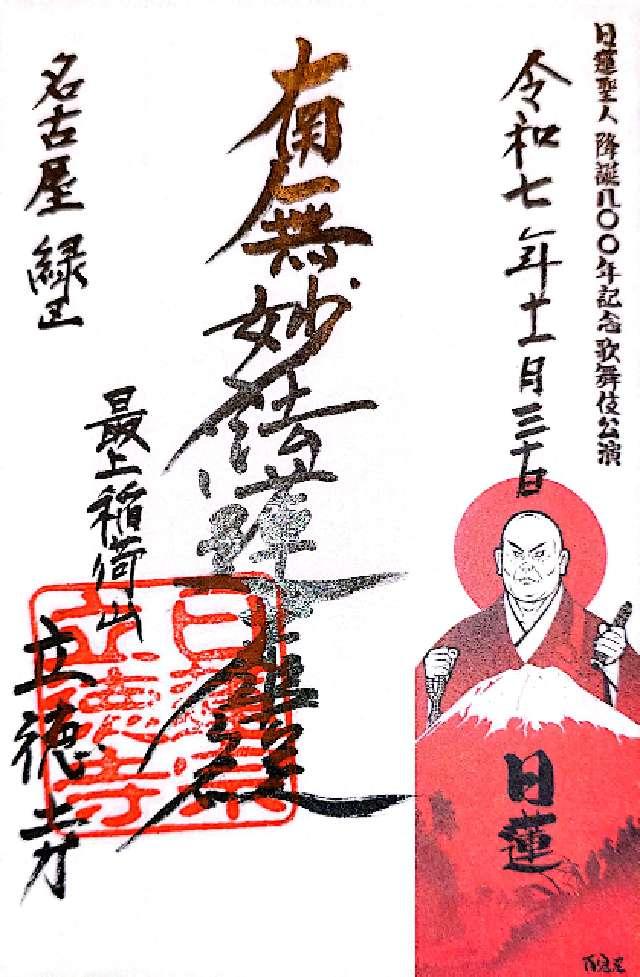 日蓮聖人降誕八〇〇年記念歌舞伎公演
令和七年十一月三十日
南無妙法蓮華經
名古屋 緑区
最上稲荷山
立徳寺
日蓮宗
立徳寺
日蓮